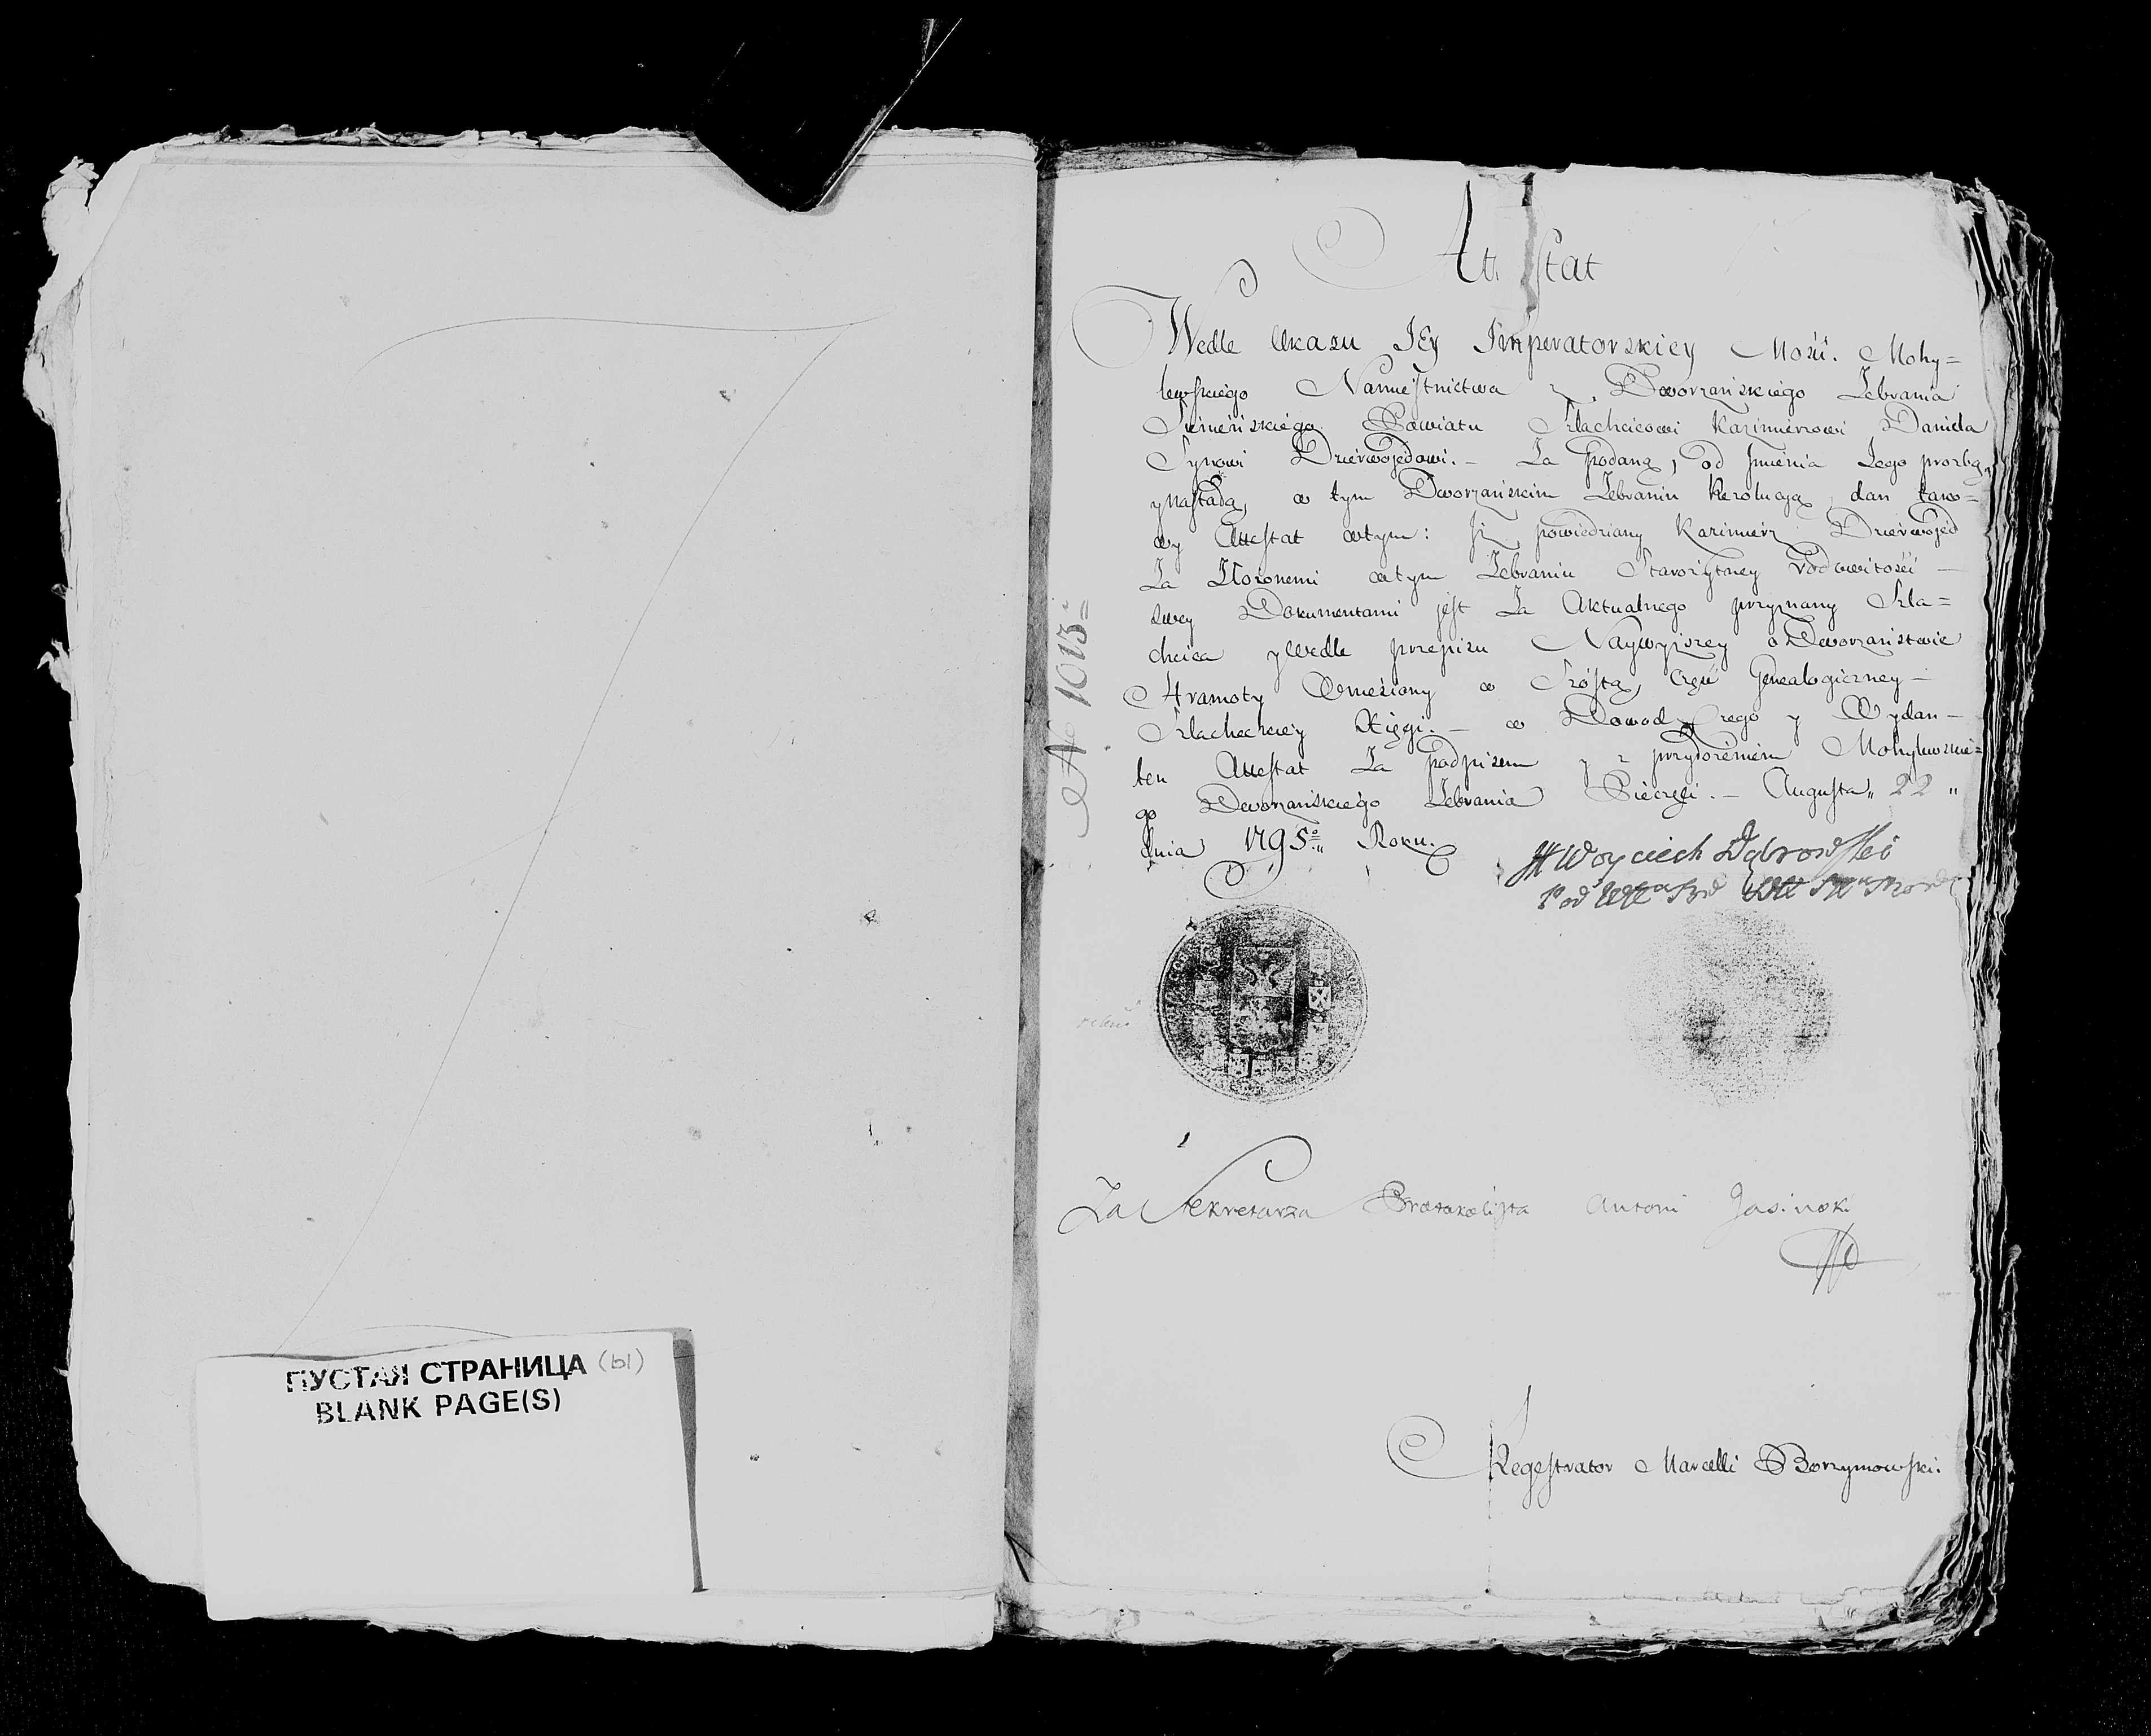 ПУСТАЯ СТРАНИЦА (ы)
BLANK PAGE(S)
Attestat
Wedle Ukazu JEy Imperatorskiey Mości. Mohy=
lewskiego Namiestnictwa z Dworzańskiego Zebrania
Sieńeńskiego Powiatu Szlachcicowi Kazimierzowi Daniela
Synowi Dzierwojedowi. – Za Podaną, od Jmienia Jego prozbą,
y nastałą, w tym Dworzańskim Zebraniu Rezolucją, dan takow=
wy Attestat wtym: Jż powiedziany Kazimierz Dzierwojed
Za Złożonemi wtym Zebraniu Starożytney rodowitości –
swey Dokumentami jest Za Aktualnego przyznany Szla=
chcica y Wedle przepisu Naywyższey o Dworzaństwie
Hramoty Wnieśiony w Szóstą, Część Genealogiczney –
Szlacheckiey Xięgi. – w Dowod czego y Wydan –
ten Attestat Za Podpisem y z przyłożeniem Mohylewskie=
go Dworzańskiego Zebrania Pieczęci. – Augusta „ 22 „
dnia 1795º Roku.
Woyciech Dąbrowski
№ 1013
Za Sekretarza Protokolista Antoni Jasinski
Regestrator Marcelli Borzymowski.